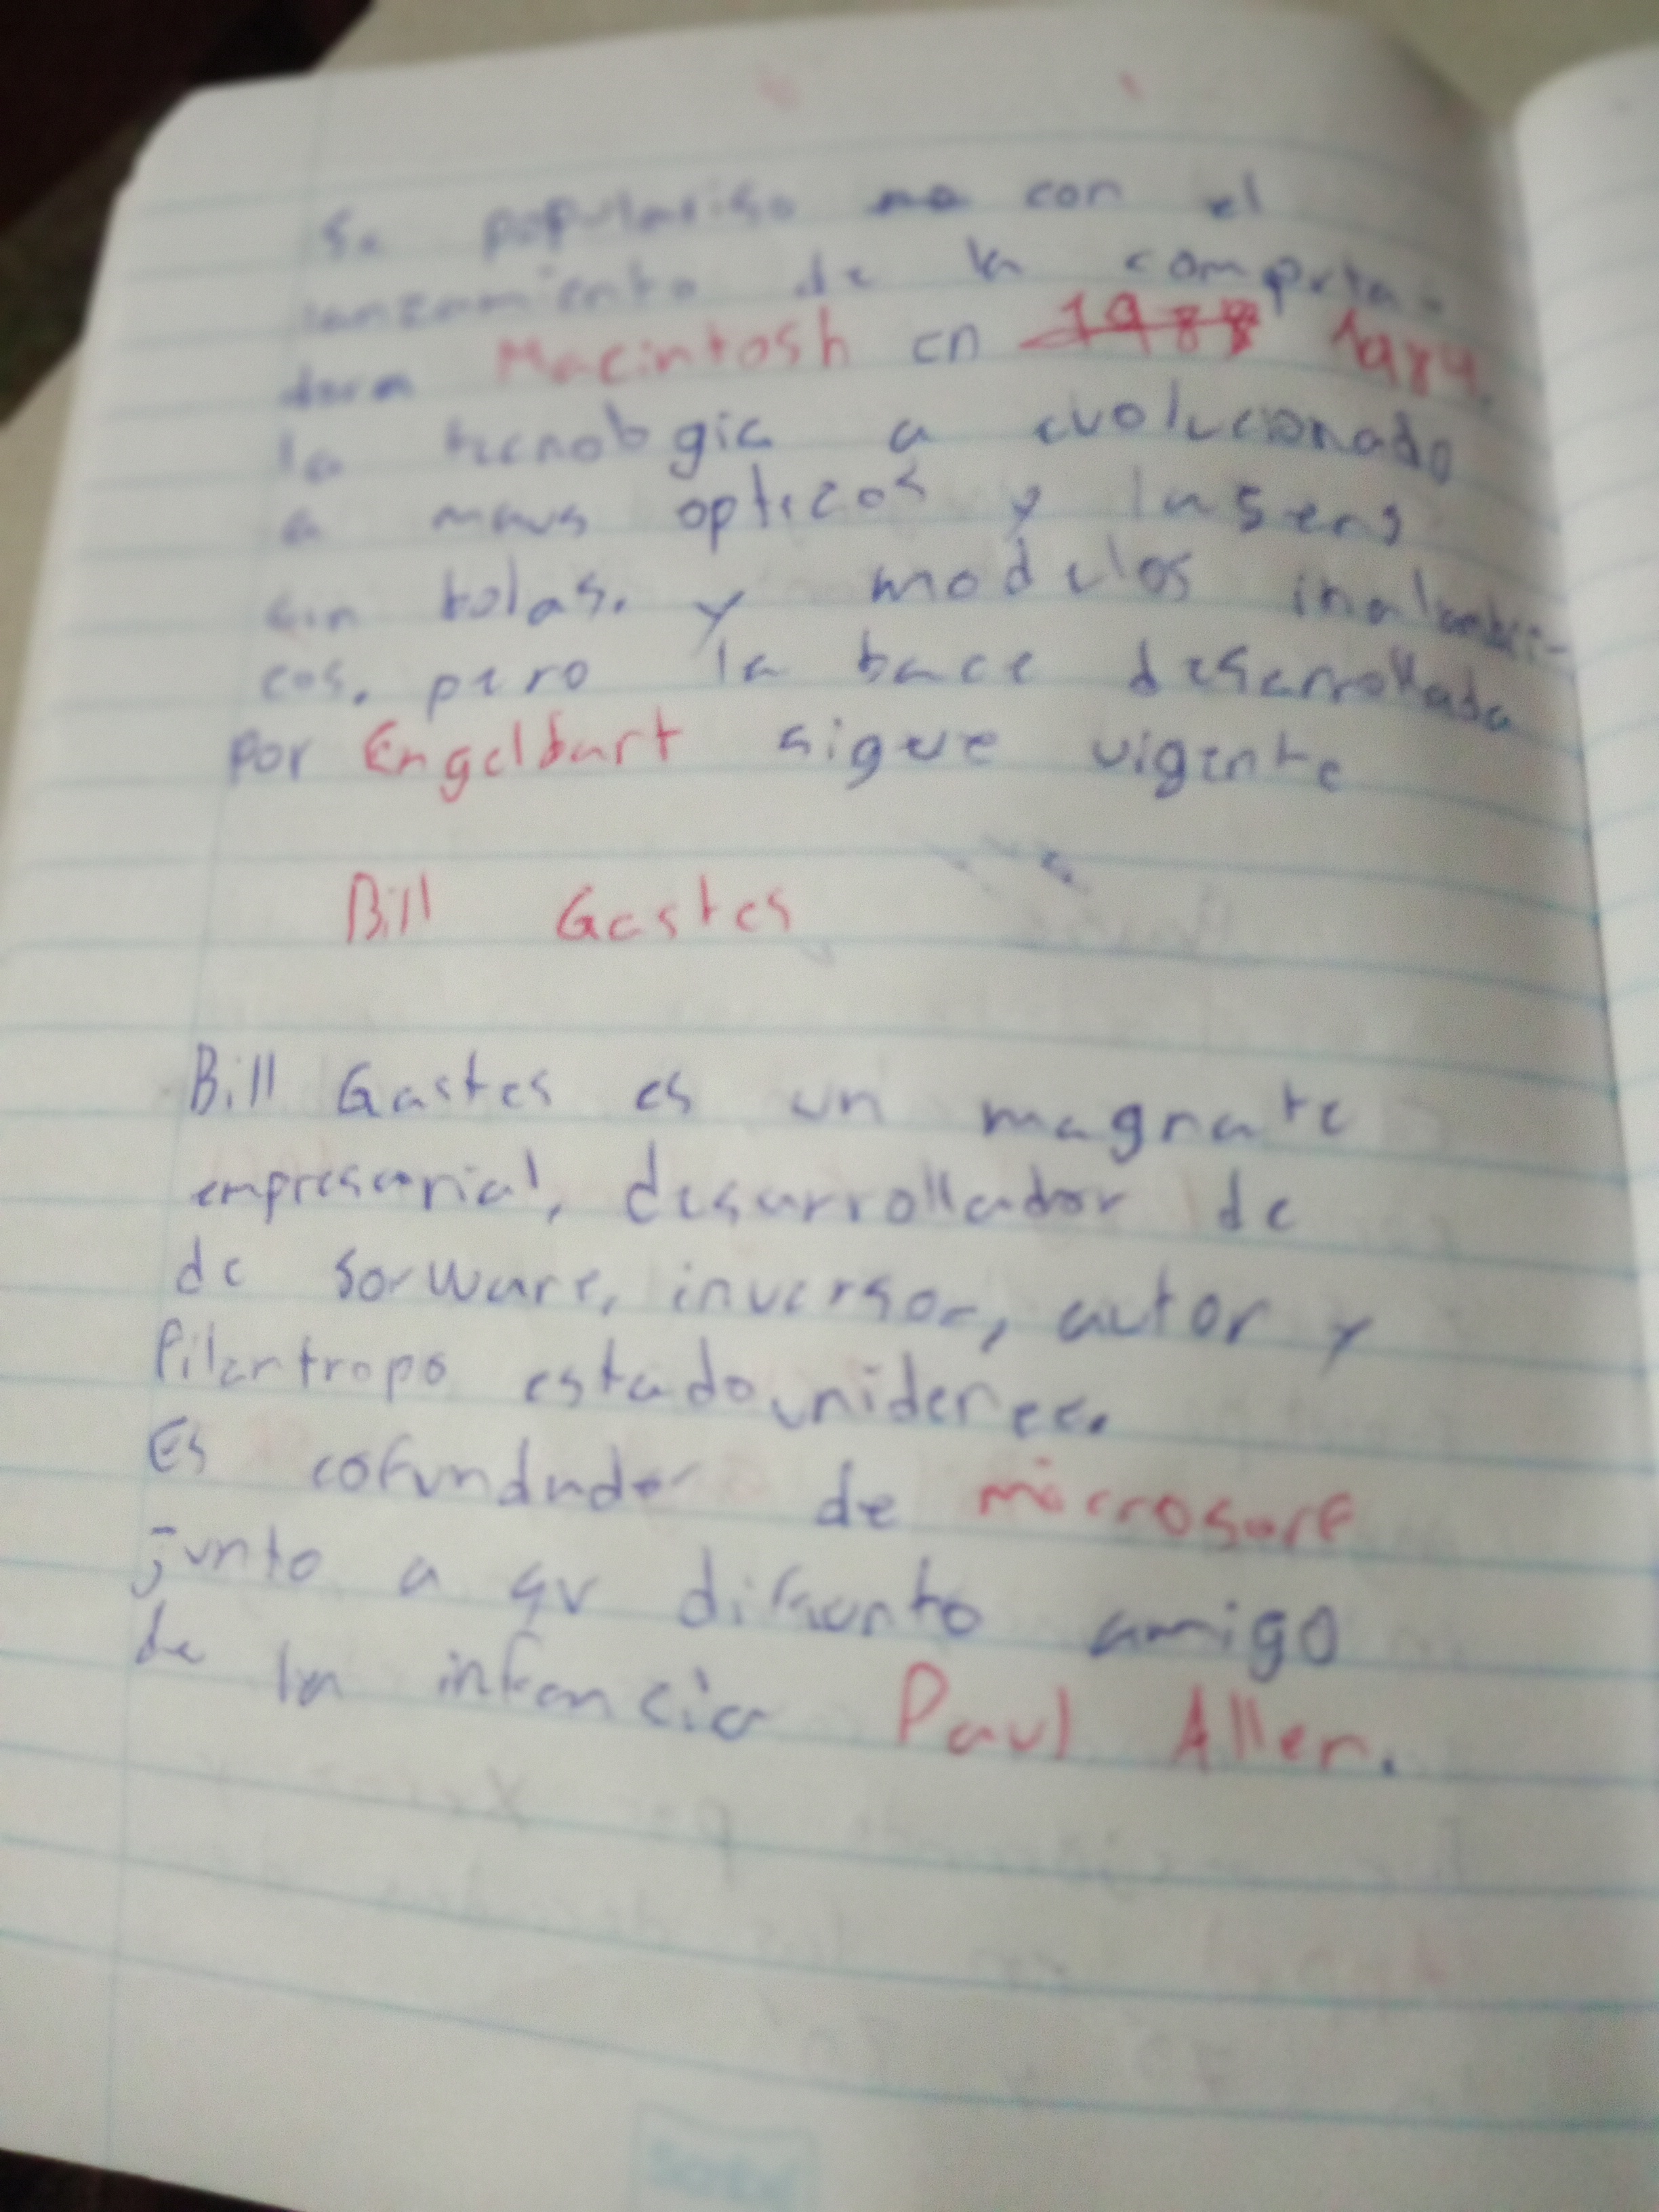 Se populariso con el
lanzamiento de la computa-
dora Macintosh en 1984.
la tecnologia a evolucionado
a maus opticos y lasers
sin bolas. y modelos inalambri-
cos. pero la bace desarrollada
por Engelbart sigue vigente
Bill Gastes
Bill Gastes es un magnate
empresarial, desarrollador de
de sorware, inversor, autor y
Filantropo estadounidence.
Es cofundador de microsorf
junto a su difunto amigo
de la infancia Paul Allen.